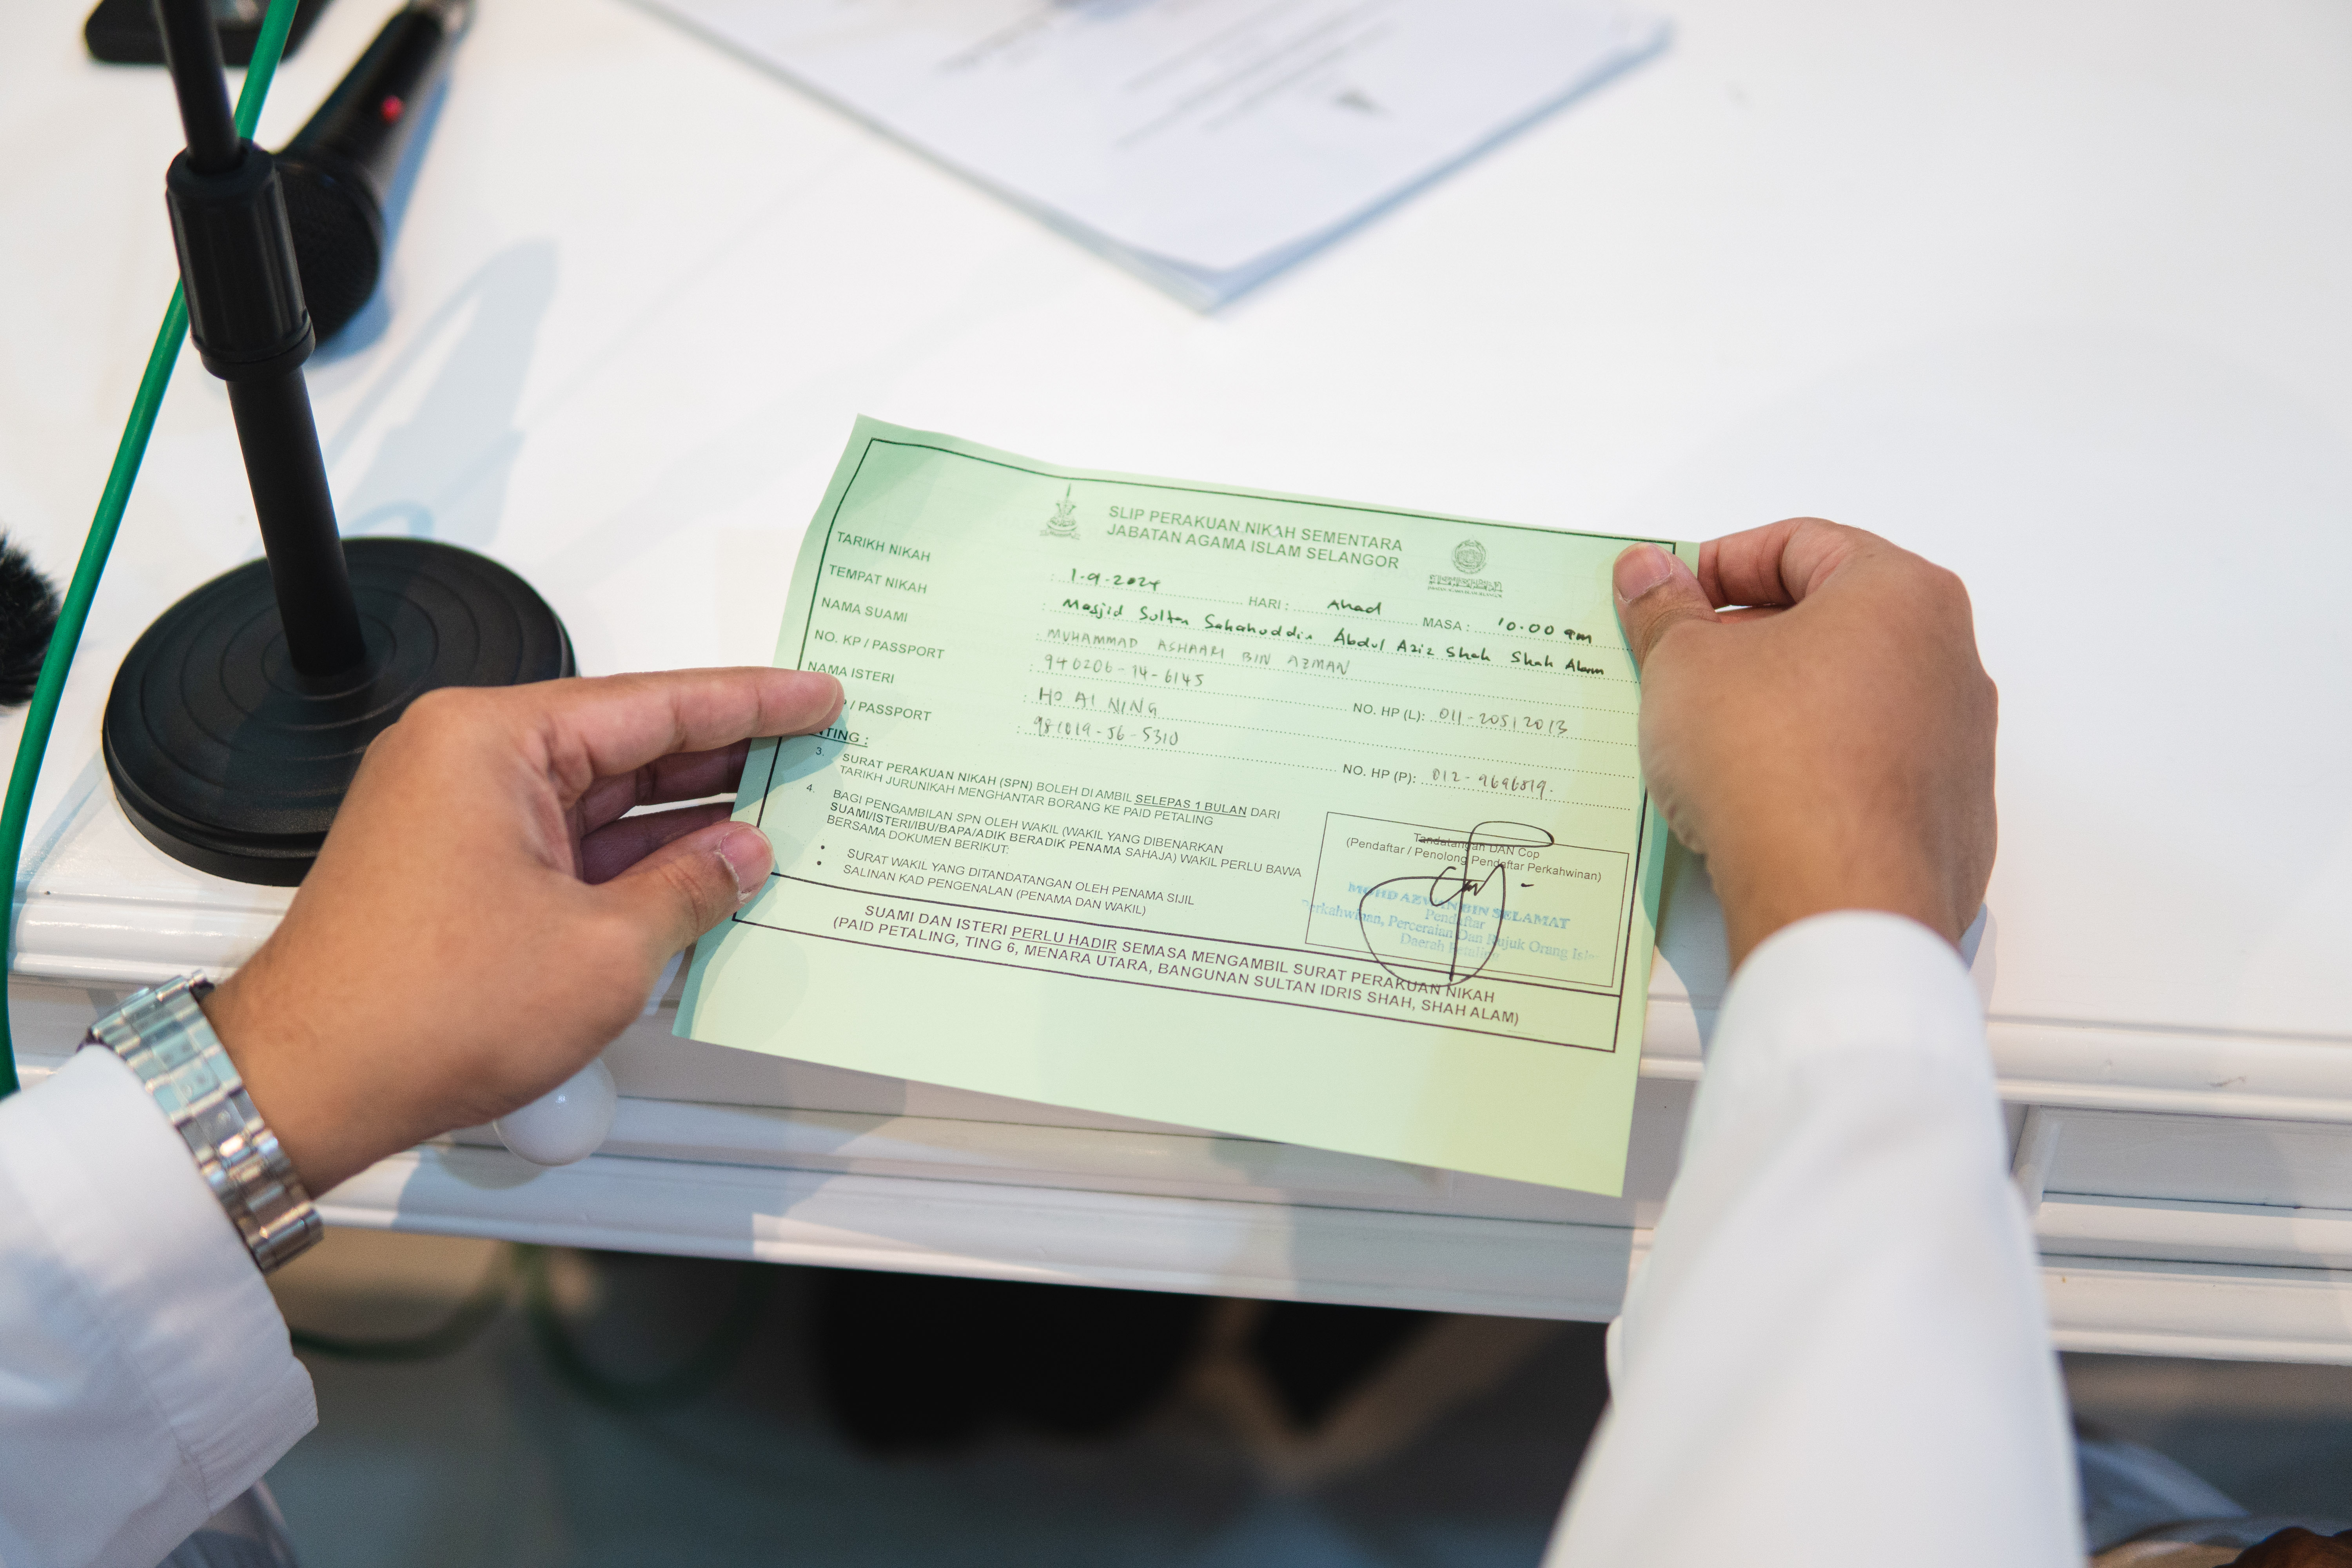 SLIP PERAKUAN NIKAH SEMENTARA
JABATAN AGAMA ISLAM SELANGOR
TARIKH NIKAH : 1-9-2024 HARI : Ahad MASA : 10.00 am
TEMPAT NIKAH : Masjid Sultan Sahahuddin Abdul Aziz Shah Shah Alam
NAMA SUAMI : MUHAMMAD ASHAARI BIN AZMAN
NO. KP / PASSPORT : 940206-14-6145 NO. HP (L): 011-20512013
NAMA ISTERI : HO AI NING
/ PASSPORT : 981019-56-5310 NO. HP (P): 012-9696819.
TING :
3. SURAT PERAKUAN NIKAH (SPN) BOLEH DI AMBIL SELEPAS 1 BULAN DARI
TARIKH JURUNIKAH MENGHANTAR BORANG KE PAID PETALING
4. BAGI PENGAMBILAN SPN OLEH WAKIL (WAKIL YANG DIBENARKAN
SUAMI/ISTERI/IBU/BAPA/ADIK BERADIK PENAMA SAHAJA) WAKIL PERLU BAWA
BERSAMA DOKUMEN BERIKUT:
• SURAT WAKIL YANG DITANDATANGAN OLEH PENAMA SIJIL
• SALINAN KAD PENGENALAN (PENAMA DAN WAKIL)
Tandatangan DAN Cop
(Pendaftar / Penolong Pendaftar Perkahwinan)
MOHD AZWAN BIN SELAMAT
Pendaftar
Perkahwinan, Perceraian Dan Rujuk Orang Isla
Daerah Petaling
SUAMI DAN ISTERI PERLU HADIR SEMASA MENGAMBIL SURAT PERAKUAN NIKAH
(PAID PETALING, TING 6, MENARA UTARA, BANGUNAN SULTAN IDRIS SHAH, SHAH ALAM)